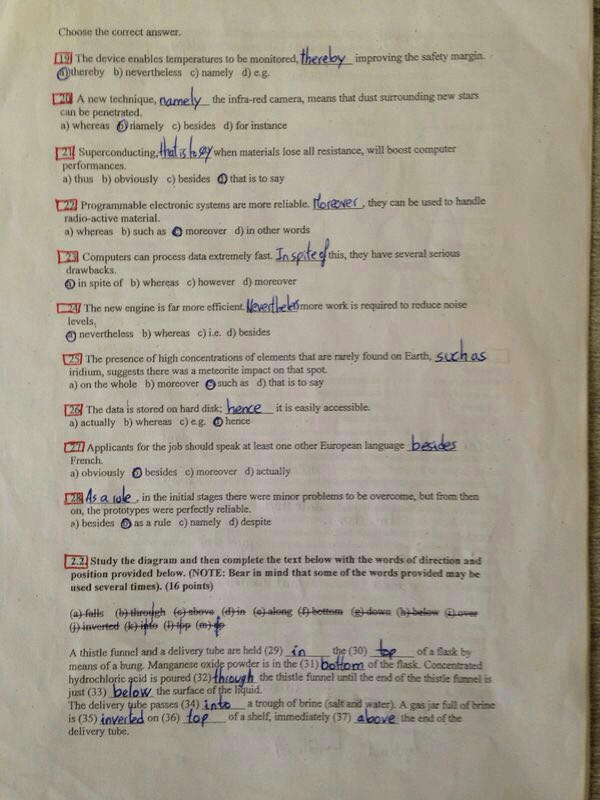 Choose the correct answer.
19 The device enables temperatures to be monitored, thereby improving the safety margin.
a) thereby b) nevertheless c) namely d) e.g.
20 A new technique, namely the infra-red camera, means that dust surrounding new stars
can be penetrated.
a) whereas b) namely c) besides d) for instance
21 Superconducting, that is to say when materials lose all resistance, will boost computer
performances.
a) thus b) obviously c) besides d) that is to say
22 Programmable electronic systems are more reliable. Moreover, they can be used to handle
radio-active material.
a) whereas b) such as c) moreover d) in other words
23 Computers can process data extremely fast. In spite of this, they have several serious
drawbacks.
a) in spite of b) whereas c) however d) moreover
24 The new engine is far more efficient. Nevertheless more work is required to reduce noise
levels,
a) nevertheless b) whereas c) i.e. d) besides
25 The presence of high concentrations of elements that are rarely found on Earth, such as
iridium, suggests there was a meteorite impact on that spot.
a) on the whole b) moreover c) such as d) that is to say
26 The data is stored on hard disk; hence it is easily accessible.
a) actually b) whereas c) e.g. d) hence
27 Applicants for the job should speak at least one other European language besides
French.
a) obviously b) besides c) moreover d) actually
28 As a rule, in the initial stages there were minor problems to be overcome, but from then
on, the prototypes were perfectly reliable.
a) besides b) as a rule c) namely d) despite
2.2. Study the diagram and then complete the text below with the words of direction and
position provided below. (NOTE: Bear in mind that some of the words provided may be
used several times). (16 points)
(a) falls (b) through (c) above (d) in (e) along (f) bottom (g) down (h) below (i) over
(j) inverted (k) into (l) top (m) up
A thistle funnel and a delivery tube are held (29) in the (30) top of a flask by
means of a bung. Manganese oxide powder is in the (31) bottom of the flask. Concentrated
hydrochloric acid is poured (32) through the thistle funnel until the end of the thistle funnel is
just (33) below the surface of the liquid.
The delivery tube passes (34) into a trough of brine (salt and water). A gas jar full of brine
is (35) inverted on (36) top of a shelf, immediately (37) above the end of the
delivery tube.